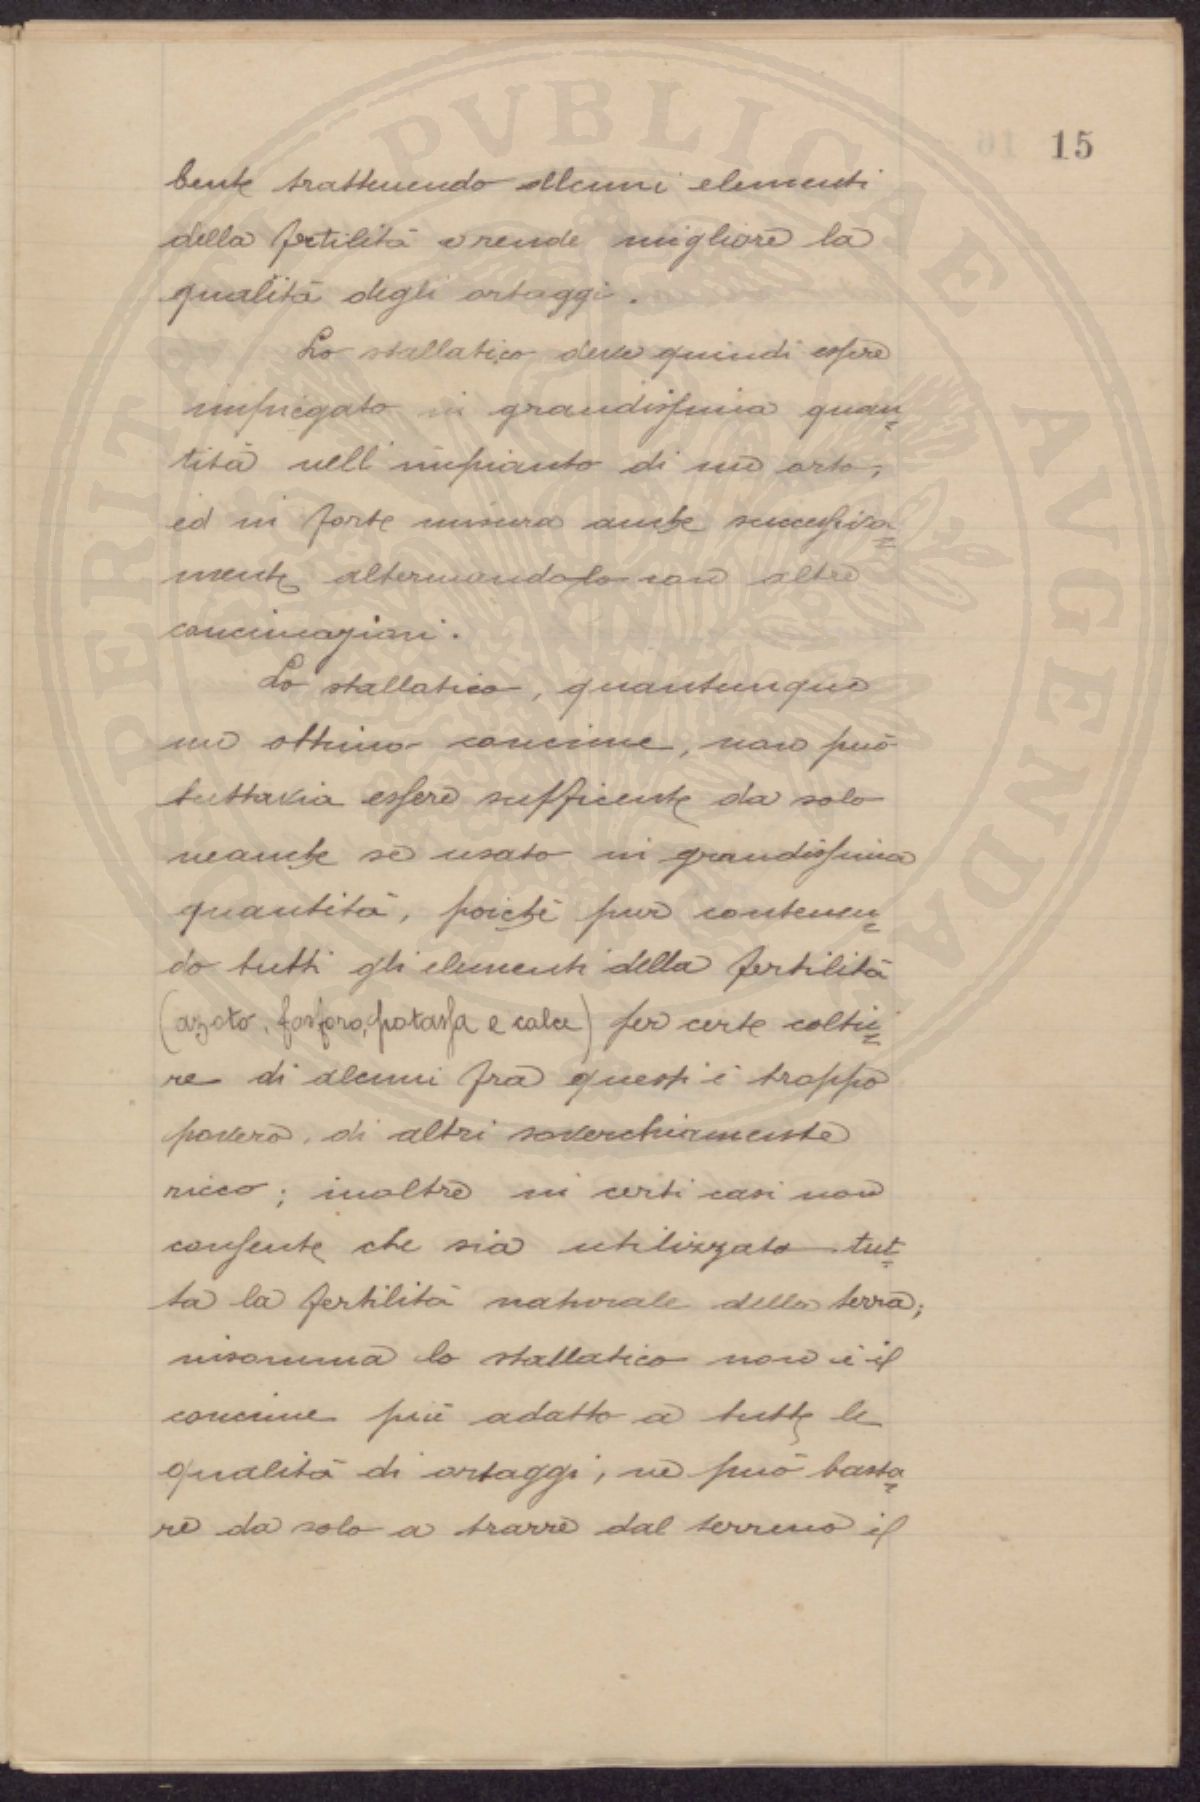 15
bente trattenendo alcuni elementi
della fertilità e rende migliore la
qualità degli ortaggi.
Lo stallatico deve quindi essere
impiegato in grandissima quan=
tità nell'impianto di un orto,
ed in forte misura anche successiva=
mente alternandolo con altre
concimazioni.
Lo stallatico, quantunque
un ottimo concime, non può
tuttavia essere sufficente da solo
neanche se usato in grandissima
quantità, poichè pur contenen=
do tutti gli elementi della fertilità
(azoto, fosforo, potassa e calce) per certe coltu=
re di alcuni fra questi è troppo
povero, di altri soverchiamente
ricco; inoltre in certi casi non
consente che sia utilizzato tut=
ta la fertilità naturale della terra;
insomma lo stallatico non è il
concime più adatto a tutte le
qualità di ortaggi, nè può basta=
re da solo a trarre dal terreno il